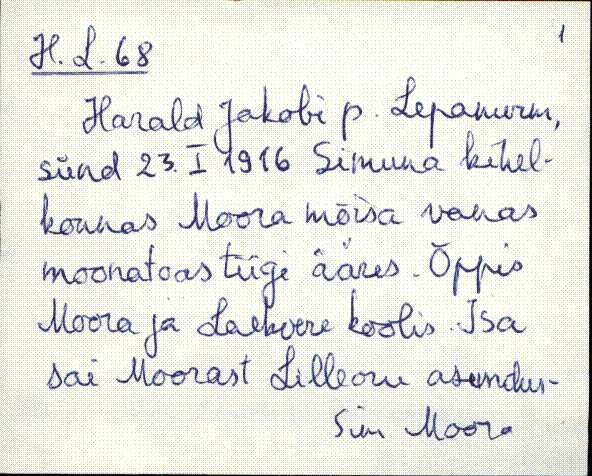 1
H. L. 68
Harald Jakobi p. Lepanurm,
sünd 23. I 1916 Simuna kihel-
konnas Moora mõisa vanas
moonatoas tiigi ääres. Õppis
Moora ja Laekvere koolis. Isa
sai Moorast Lilleoru asundus-
Sim Moora